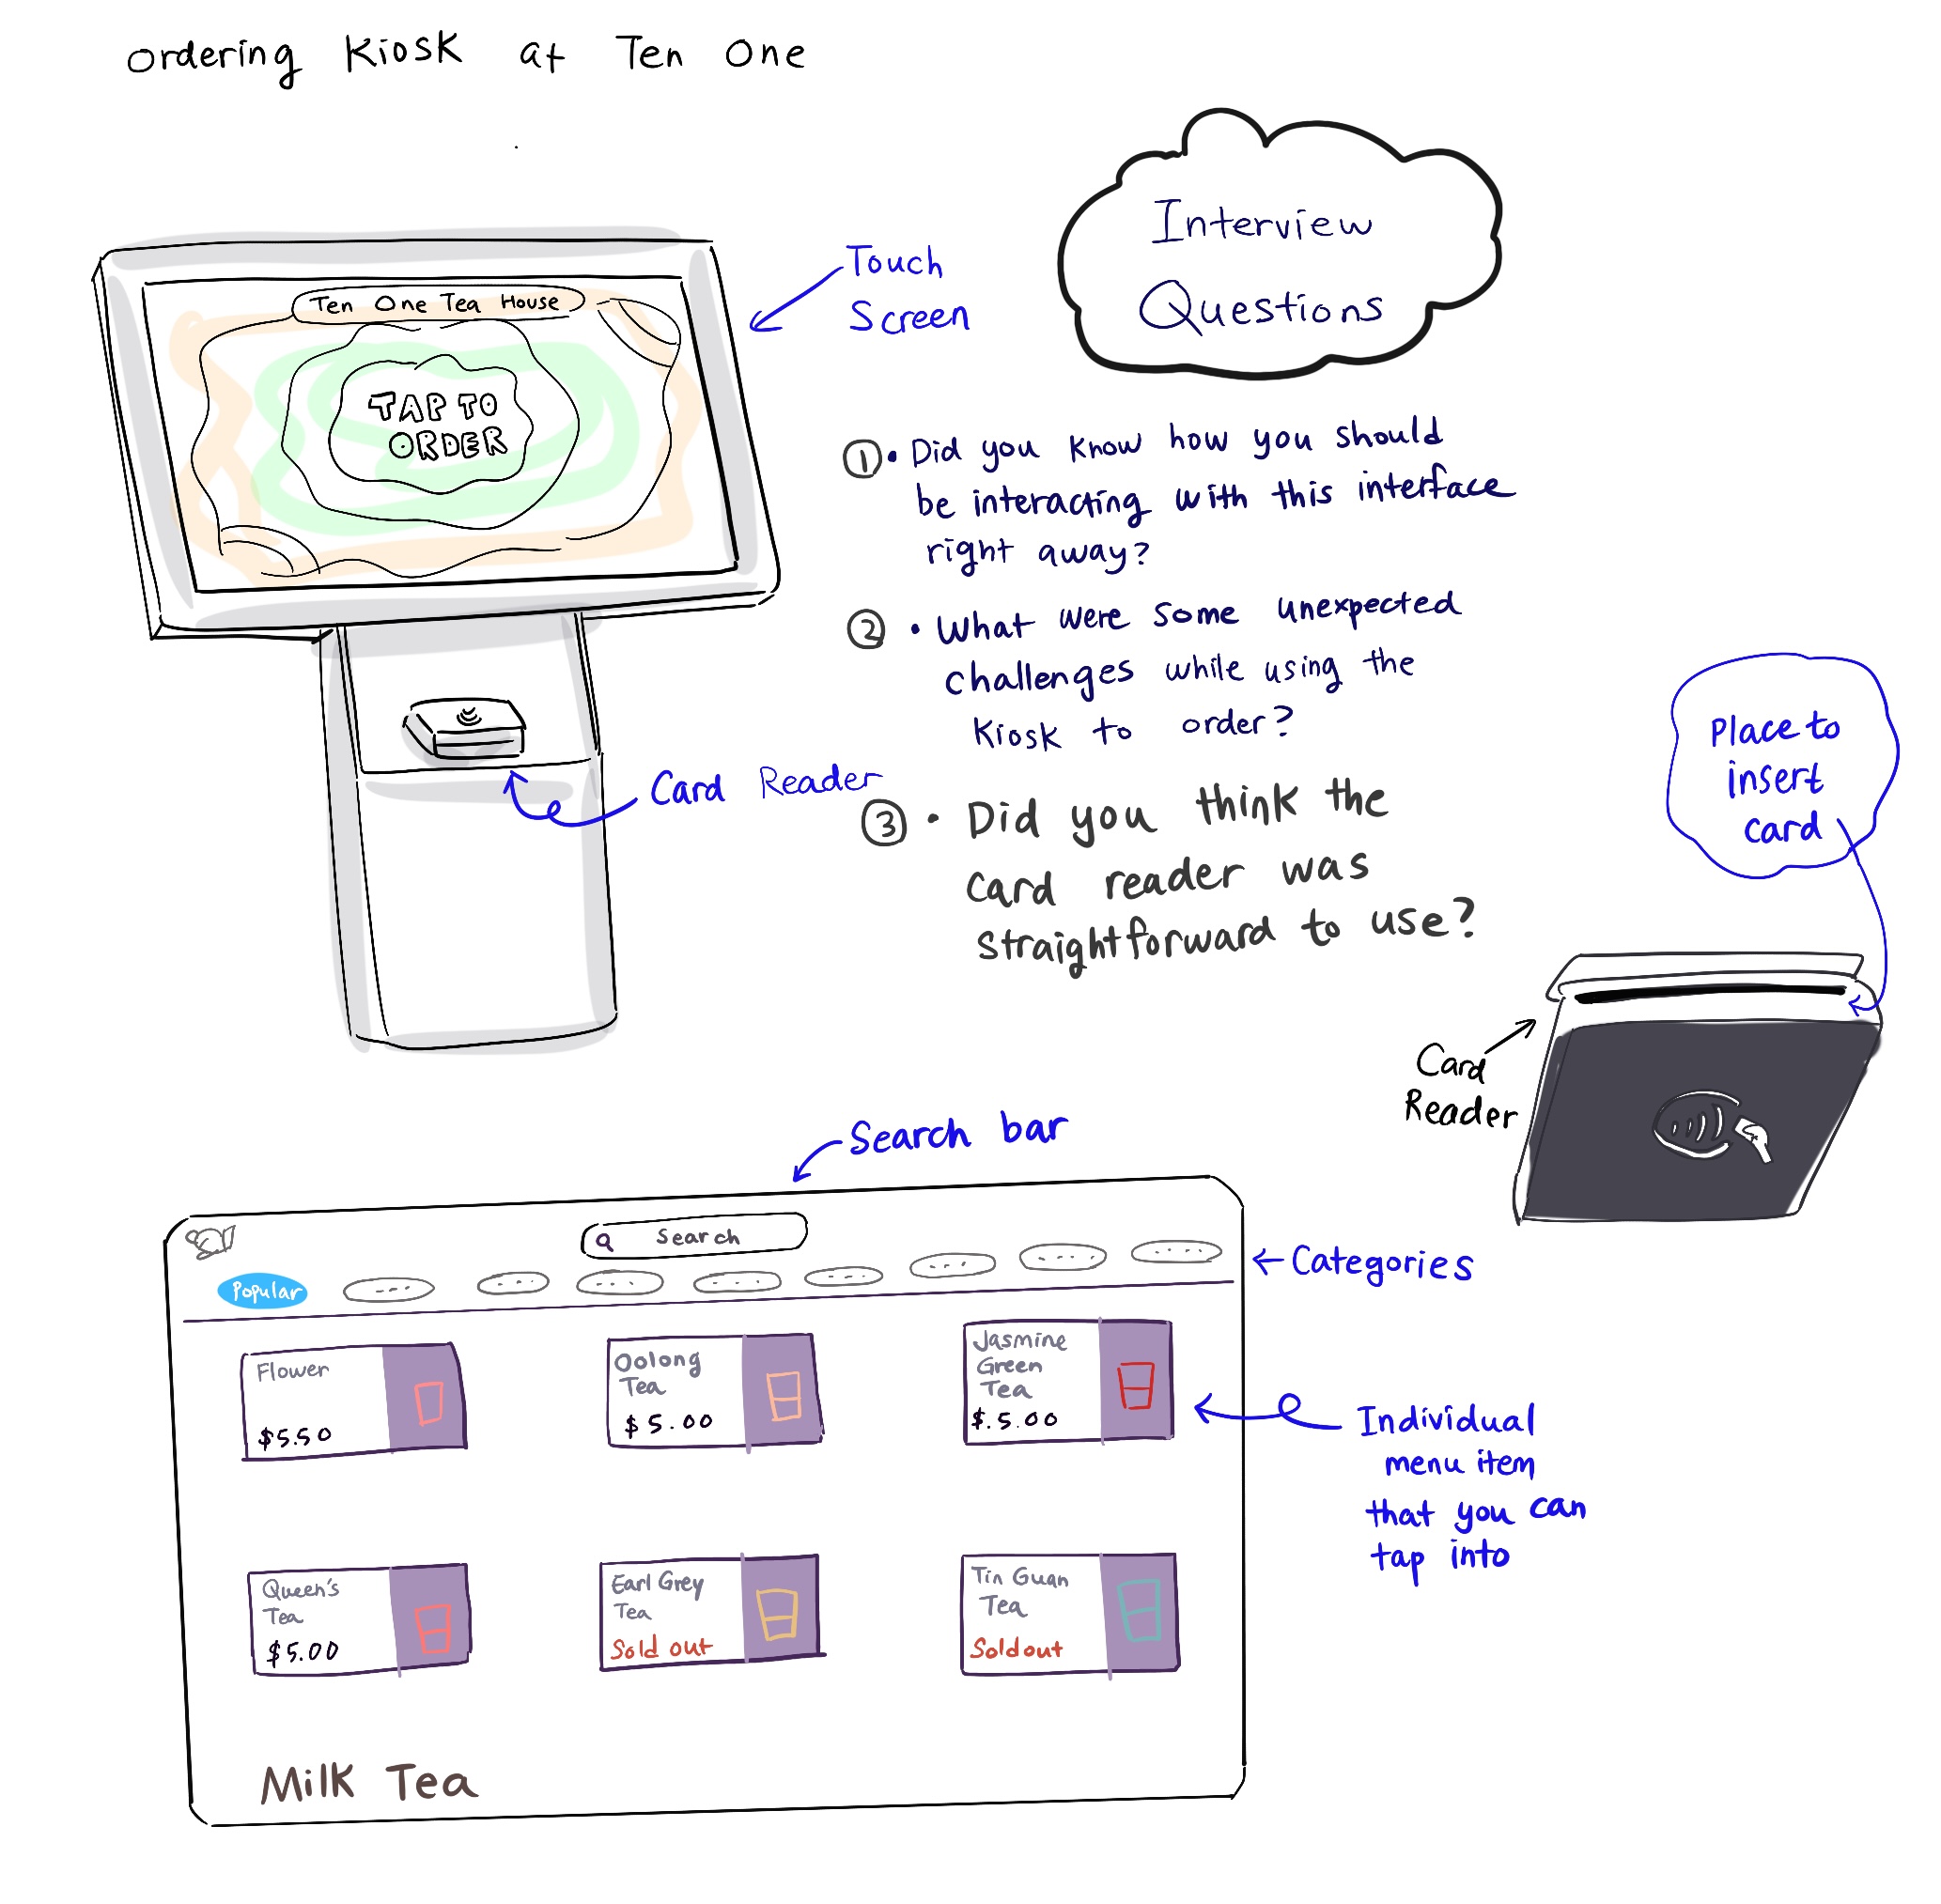 ordering Kiosk at Ten One
Interview
Questions
Touch
Screen
Ten One Tea House
TAP TO
ORDER
Card Reader
① • Did you know how you should
be interacting with this interface
right away?
② • What were some unexpected
challenges while using the
Kiosk to order?
③ • Did you think the
card reader was
straightforward to use?
Place to
insert
card
Card
Reader
Search bar
Search
Categories
Popular
Flower
$5.50
Oolong
Tea
$5.00
Jasmine
Green
Tea
$.5.00
Individual
menu item
that you can
tap into
Queen's
Tea
$5.00
Earl Grey
Tea
Sold out
Tin Guan
Tea
Sold out
Milk Tea